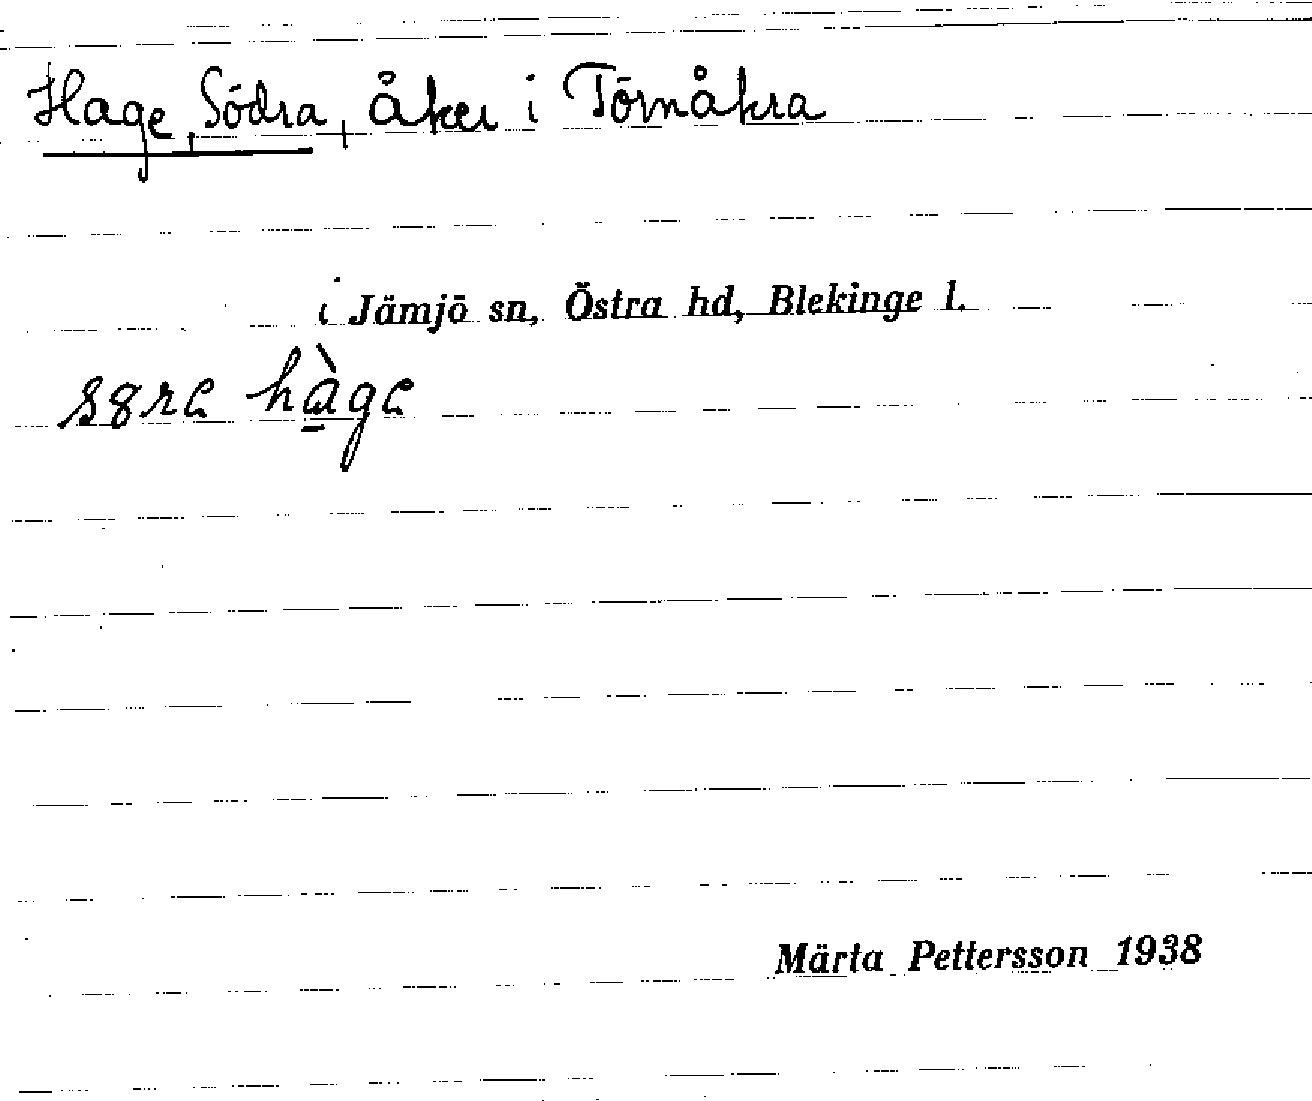 Hage, Södra, åker i Törnåkra
i Jämjö sn, Östra hd, Blekinge l.
Märta Pettersson 1938